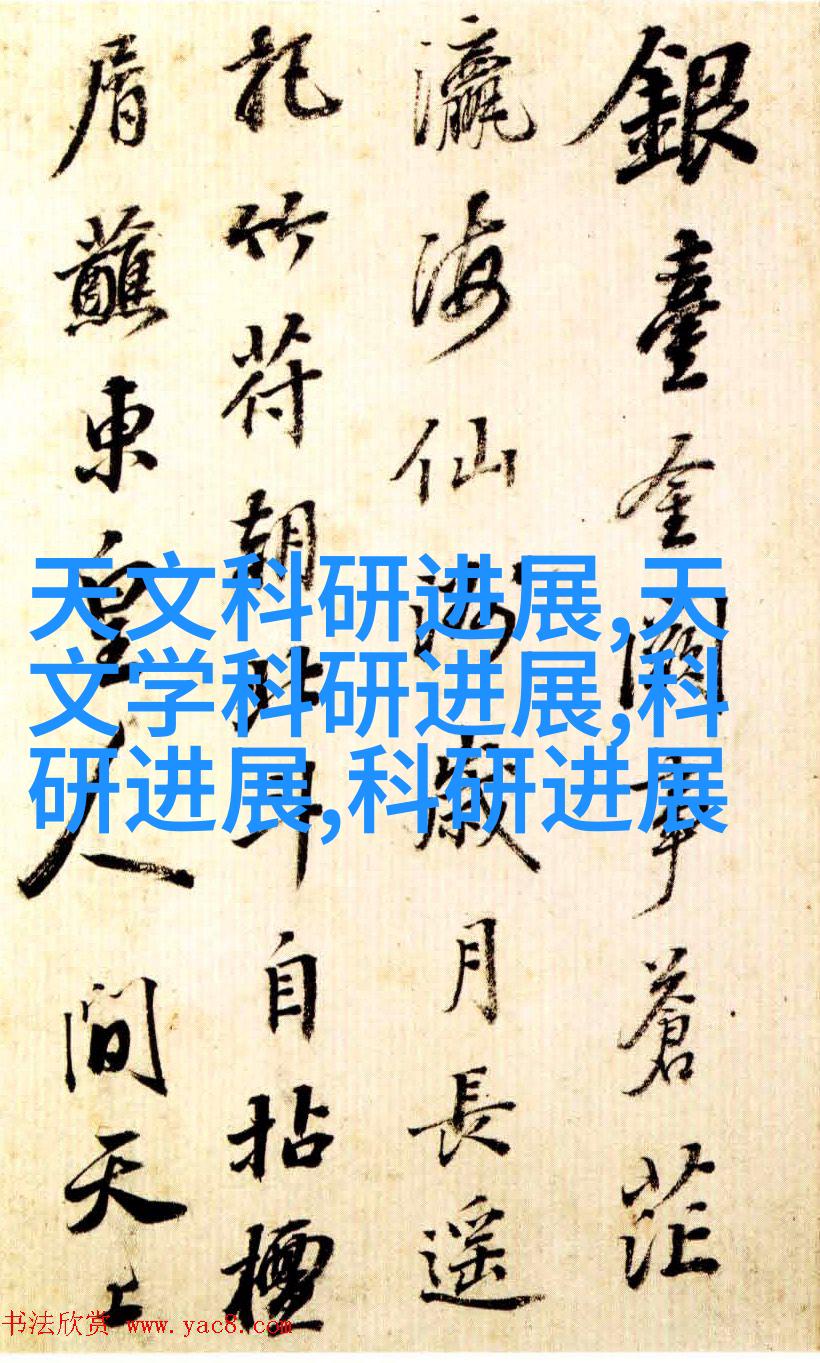 銀臺金闕事蒼茫
瀛海仙洲歲月長遥
記竹符朝北斗自拈檀
屑蘸東皇人間天上
天文科研进展,天
文学科研进展,科
研进展,科研进展
书法欣赏 www.yac8.com